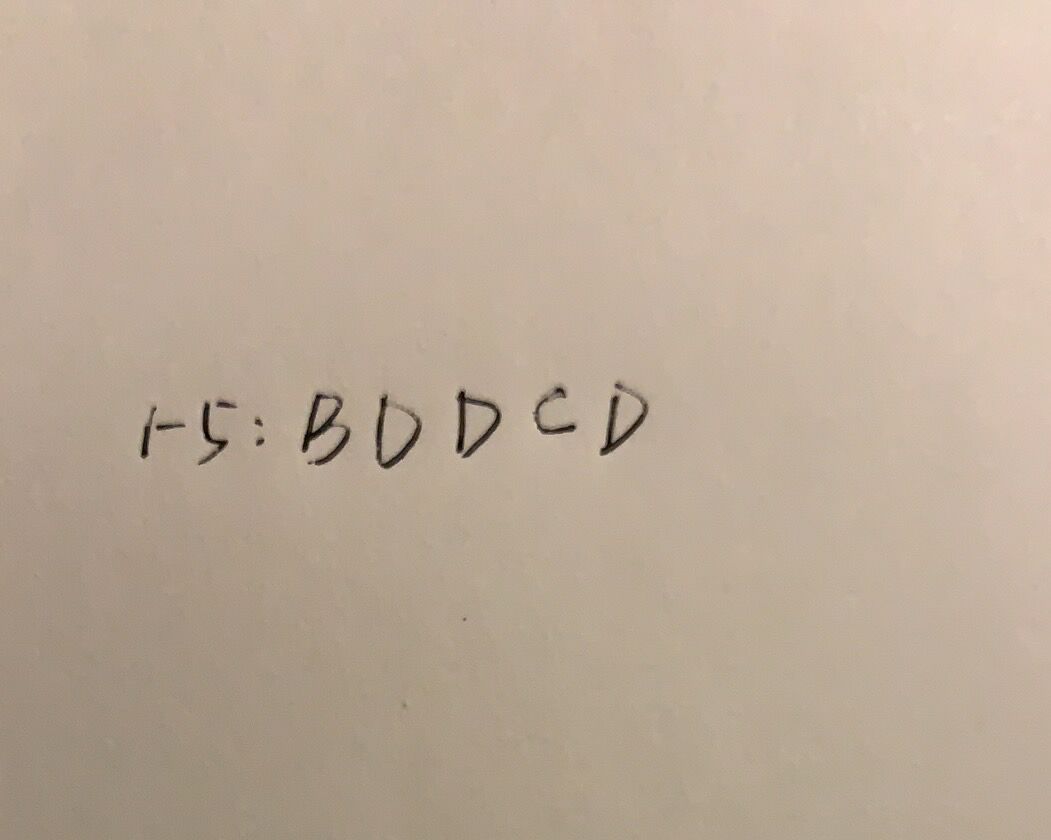 1-5: B D D C D